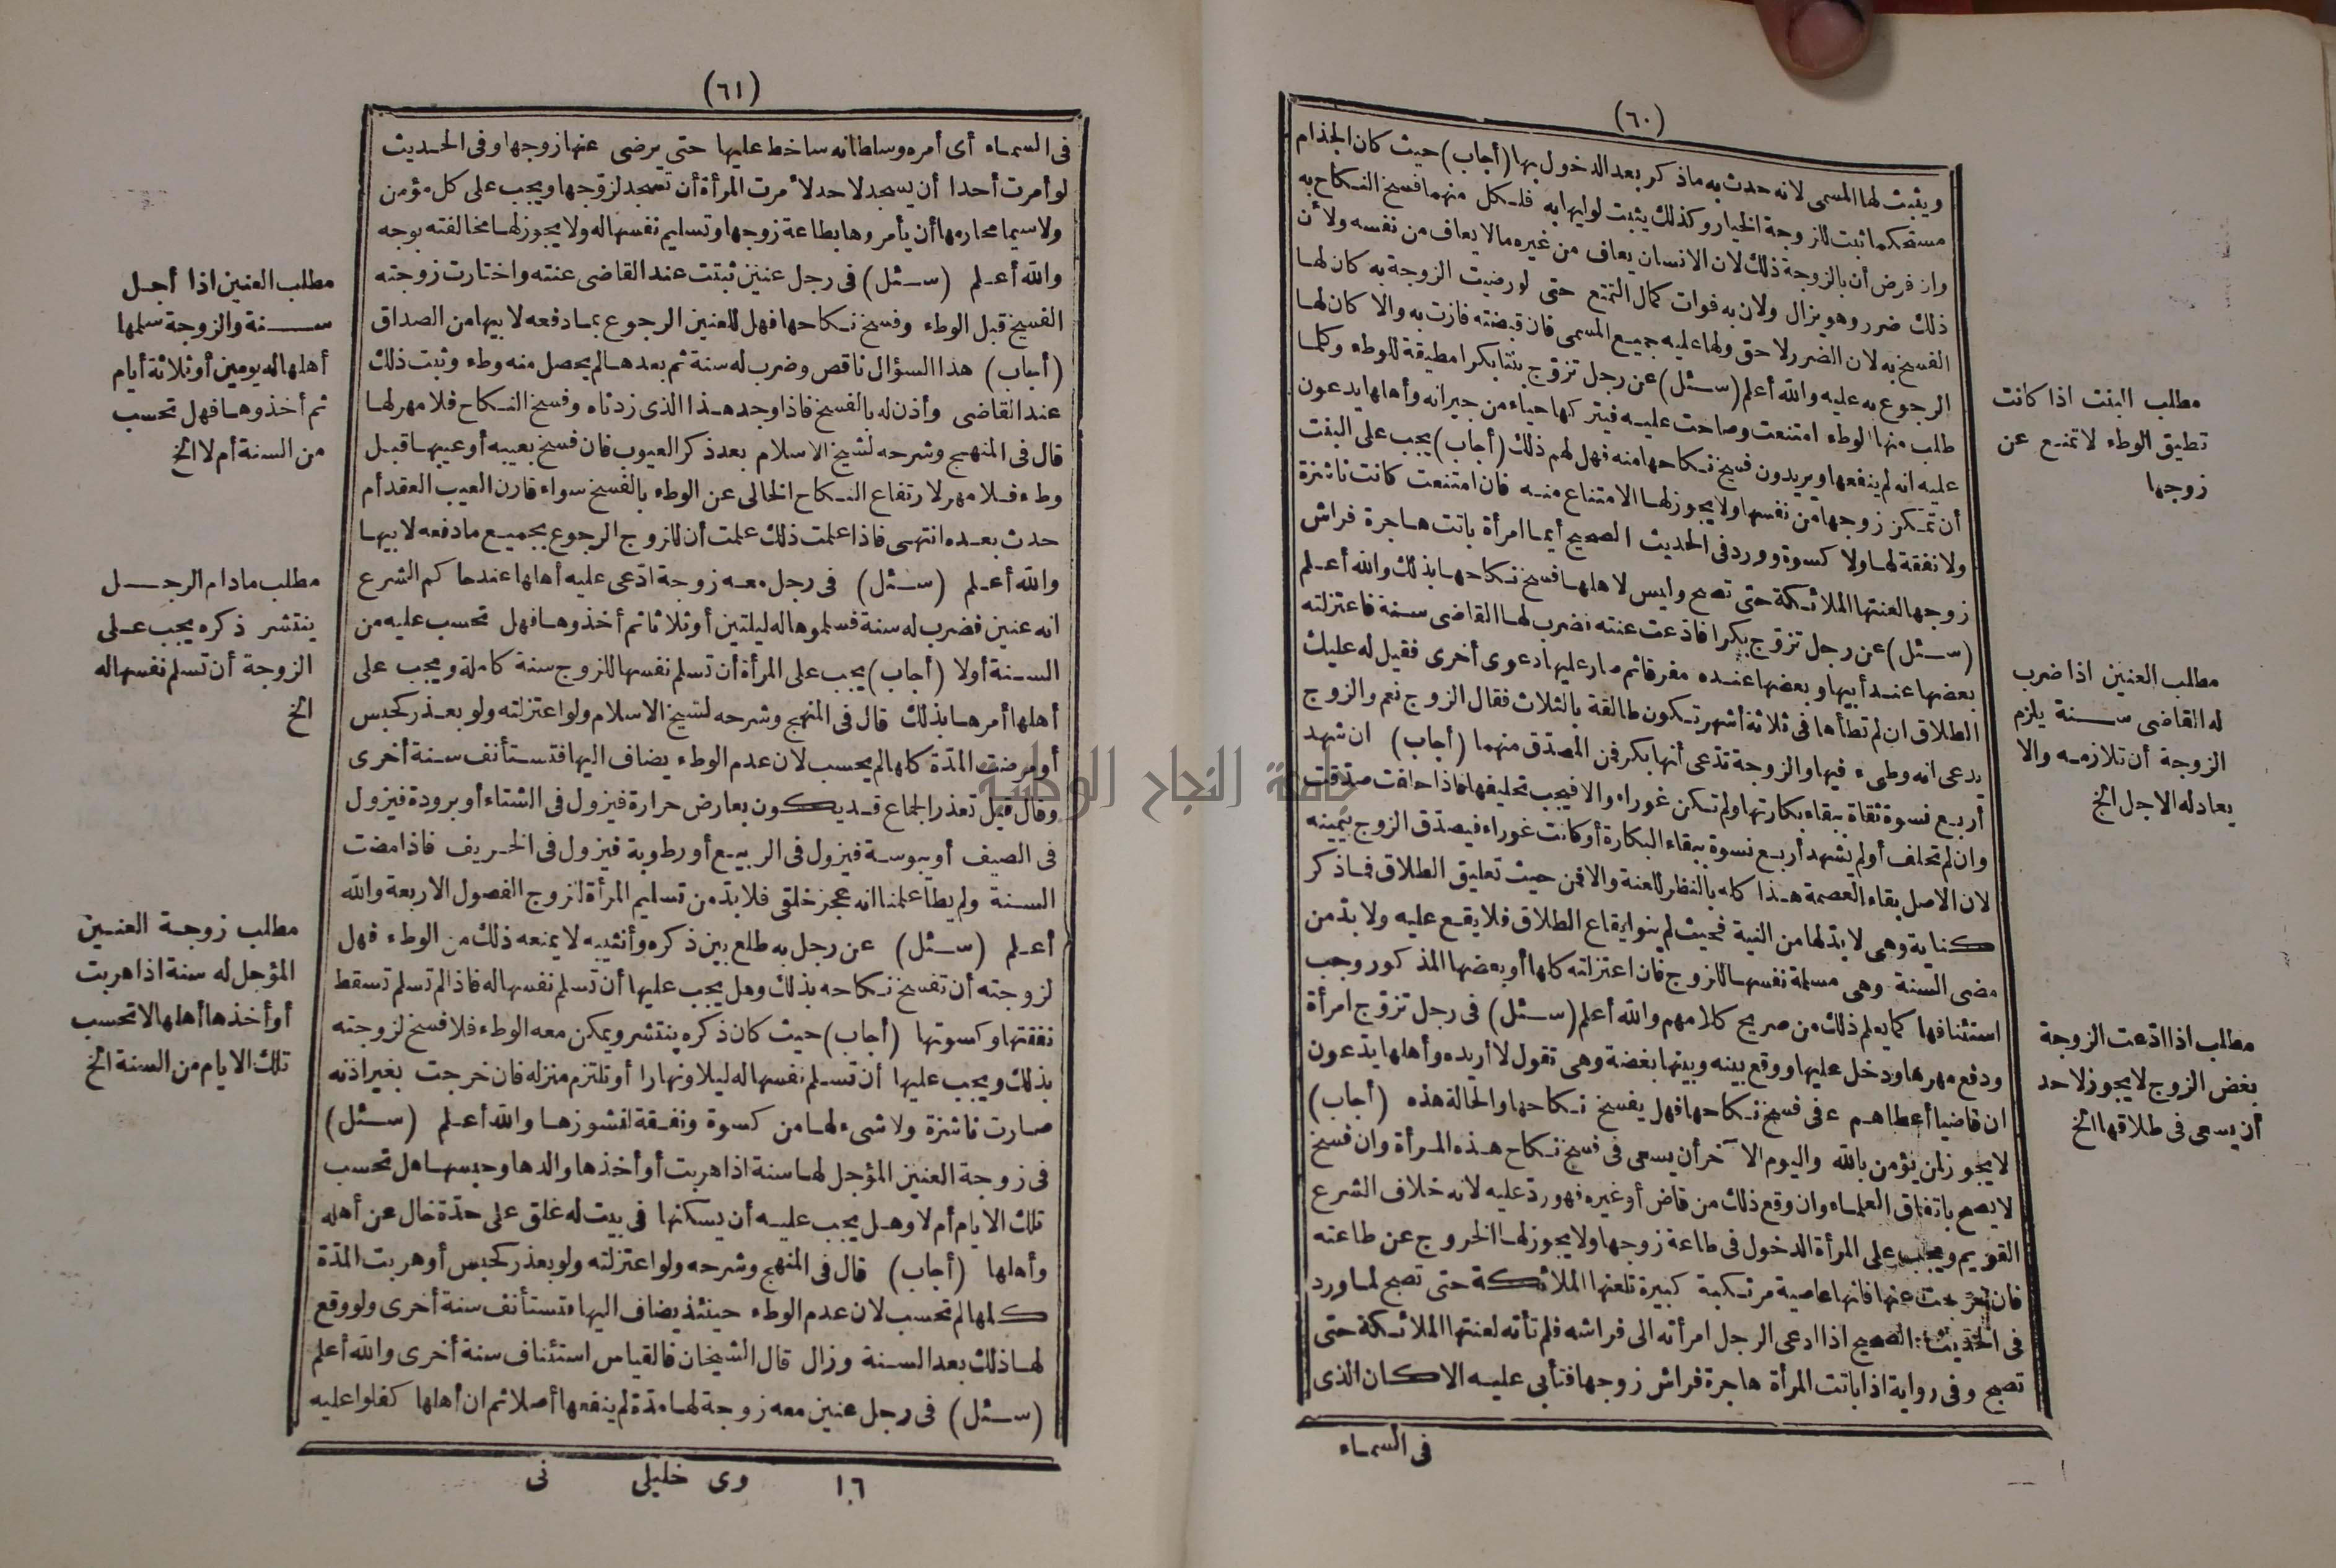 (٦٠)
ويثبت لها المسمى لانه حدث به ماذكر بعد الدخول بها (أجاب) حيث كان الجذام
مستحكما ثبت للزوجة الخيار وكذلك يثبت لوليها به فلكل منهما فسخ النكاح به
وان فرض أن بالزوجة ذلك لان الانسان يعاف من غيره مالا يعاف من نفسه ولأن
ذلك ضرر وهو يزال ولان به فوات كمال التمتع حتى لو رضيت الزوجة به كان لها
الفسخ به لان الضرر لاحق ولها عليه جميع المسمى فان قبضته فازت به والا كان لها
الرجوع به عليه والله أعلم (سئل) عن رجل تزوج بنتا بكرا مطيقة للوطء وكلما
طلب منها الوطء امتنعت وصاحت عليه فيتركها حياء من جيرانه وأهلها يدعون
عليه انه لم ينفعها ويريدون فسخ نكاحها منه فهل لهم ذلك (أجاب) يجب على البنت
أن تمكن زوجها من نفسها ولا يجوز لها الامتناع منه فان امتنعت كانت ناشزة
ولا نفقة لها ولا كسوة وورد فى الحديث الصحيح أيما امرأة باتت هاجرة فراش
زوجها لعنتها الملائكة حتى تصبح وليس لاهلها فسخ نكاحها بذلك والله أعلم
(سئل) عن رجل تزوج بكرا فادعت عنته فضرب لها القاضى سنة فاعتزلته
بعضها عند أبيها وبعضها عنده مفرقا ثم صار عليها دعوى أخرى فقيل له عليك
الطلاق ان لم تطأها فى ثلاثة أشهر تكون طالقة بالثلاث فقال الزوج نعم والزوج
يدعى انه وطىء فيها والزوجة تدعى أنها بكر فمن المصدق منهما (أجاب) ان شهد
أربع نسوة ثقاة ببقاء بكارتها ولم تكن غوراء والا فيجب تحليفها فاذا حلفت صدقت
وان لم تحلف أو لم يشهد أربع نسوة ببقاء البكارة أو كانت غوراء فيصدق الزوج بيمينه
لان الاصل بقاء العصمة هذا كله بالنظر للعنة والا فمن حيث تعليق الطلاق فماذكر
كناية وهى لا بد لها من النية فحيث لم ينو ايقاع الطلاق فلا يقع عليه ولا بد من
مضى السنة وهى مسلمة نفسها للزوج فان اعتزلته كلها أو بعضها المذكور وجب
استئنافها كما يعلم ذلك من صريح كلامهم والله أعلم (سئل) فى رجل تزوج امرأة
ودفع مهرها ودخل عليها ووقع بينه وبينها بغضة وهى تقول لا أريده وأهلها يدعون
ان قاضيا أعطاهم فى فسخ نكاحها فهل يفسخ نكاحها والحالة هذه (أجاب)
لا يجوز لمن يؤمن بالله واليوم الآخر أن يسعى فى فسخ نكاح هذه المرأة وان فسخ
لا يصح باتفاق العلماء وان وقع ذلك من قاض أو غيره فهو رد عليه لانه خلاف الشرع
القويم ويجب على المرأة الدخول فى طاعة زوجها ولا يجوز لها الخروج عن طاعته
فان خرجت عنها فانها عاصية مرتكبة كبيرة تلعنها الملائكة حتى تصبح لما ورد
فى الحديث الصحيح اذا ادعى الرجل امرأته الى فراشه فلم تأته لعنتها الملائكة حتى
تصبح وفى رواية اذا باتت المرأة هاجرة فراش زوجها فتأبى عليه الا كان الذى
فى السماء
مطلب البنت اذا كانت
تطيق الوطء لا تمنع عن
زوجها
مطلب العنين اذا ضرب
له القاضى سنة يلزم
الزوجة أن تلازمه والا
يعاد له الاجل الخ
مطلب اذا ادعت الزوجة
بغض الزوج لا يجوز لاحد
أن يسعى فى طلاقها الخ
(٦١)
فى السماء أى أمره وسلطانه ساخط عليها حتى يرضى عنها زوجها وفى الحديث
لو أمرت أحدا أن يسجد لاحد لأمرت المرأة أن تسجد لزوجها ويجب على كل مؤمن
ولا سيما محارمها أن يأمروها بطاعة زوجها وتسليم نفسها له ولا يجوز لها مخالفته بوجه
والله أعلم (سئل) فى رجل عنين ثبتت عند القاضى عنته واختارت زوجته
الفسخ قبل الوطء وفسخ نكاحها فهل للعنين الرجوع بما دفعه لابيها من الصداق
(أجاب) هذا السؤال ناقص وضرب له سنة ثم بعدها لم يحصل منه وطء وثبت ذلك
عند القاضى وأذن له بالفسخ فاذا وجد هذا الذى زدناه وفسخ النكاح فلا مهر لها
قال فى المنهج وشرحه لشيخ الاسلام بعد ذكر العيوب فان فسخ بعيبه أو عيبها قبل
وطء فلا مهر لارتفاع النكاح الخالى عن الوطء بالفسخ سواء قارن العيب العقد أم
حدث بعده انتهى فاذا علمت ذلك علمت أن للزوج الرجوع بجميع ما دفعه لابيها
والله أعلم (سئل) فى رجل معه زوجة ادعى عليه أهلها عند حاكم الشرع
انه عنين فضرب له سنة فسلموها له ليلتين أو ثلاثا ثم أخذوها فهل تحسب عليه من
السنة أولا (أجاب) يجب على المرأة أن تسلم نفسها للزوج سنة كاملة ويجب على
أهلها أمرها بذلك قال فى المنهج وشرحه لشيخ الاسلام ولو اعتزلته ولو بعذر كحبس
أو مرضت المدة كلها لم يحسب لان عدم الوطء يضاف اليها فتستأنف سنة أخرى
وقال قيل تعذر الجماع قد يكون بعارض حرارة فيزول فى الشتاء أو برودة فيزول
فى الصيف أو يبوسة فيزول فى الربيع أو رطوبة فيزول فى الخريف فاذا مضت
السنة ولم يطأ علمنا انه عجز خلقى فلا بد من تسليم المرأة لزوج الفصول الاربعة والله
أعلم (سئل) عن رجل به طلع بين ذكره وأنثييه لا يمنعه ذلك من الوطء فهل
لزوجته أن تفسخ نكاحه بذلك وهل يجب عليها أن تسلم نفسها له فاذا لم تسلم تسقط
نفقتها وكسوتها (أجاب) حيث كان ذكره ينتشر ويمكن معه الوطء فلا فسخ لزوجته
بذلك ويجب عليها أن تسلم نفسها له ليلا ونهارا أو تلتزم منزله فان خرجت بغير اذنه
صارت ناشزة ولا شىء لها من كسوة ونفقة لنشوزها والله أعلم (سئل)
فى زوجة العنين المؤجل لها سنة اذا هربت أو أخذها والدها وحبسها هل تحسب
تلك الايام أم لا وهل يجب عليه أن يسكنها فى بيت له غلق على حدة خال عن أهله
وأهلها (أجاب) قال فى المنهج وشرحه ولو اعتزلته ولو بعذر كحبس أو هربت المدة
كلها لم تحسب لان عدم الوطء حينئذ يضاف اليها فتستأنف سنة أخرى ولو وقع
لها ذلك بعد السنة وزال قال الشيخان فالقياس استئناف سنة أخرى والله أعلم
(سئل) فى رجل عنين معه زوجة لها مدة لم ينفعها أصلا ثم ان أهلها كفلوا عليه
١٦ وى خليلى نى
مطلب العنين اذا أجل
سنة والزوجة سلمها
أهلها له يومين أو ثلاثة أيام
ثم أخذوها فهل تحسب
من السنة أم لا الخ
مطلب مادام الرجل
ينتشر ذكره يجب على
الزوجة أن تسلم نفسها له
الخ
مطلب زوجة العنين
المؤجل له سنة اذا هربت
أو أخذها أهلها لا تحسب
تلك الايام من السنة الخ
جامعة النجاح الوطنية